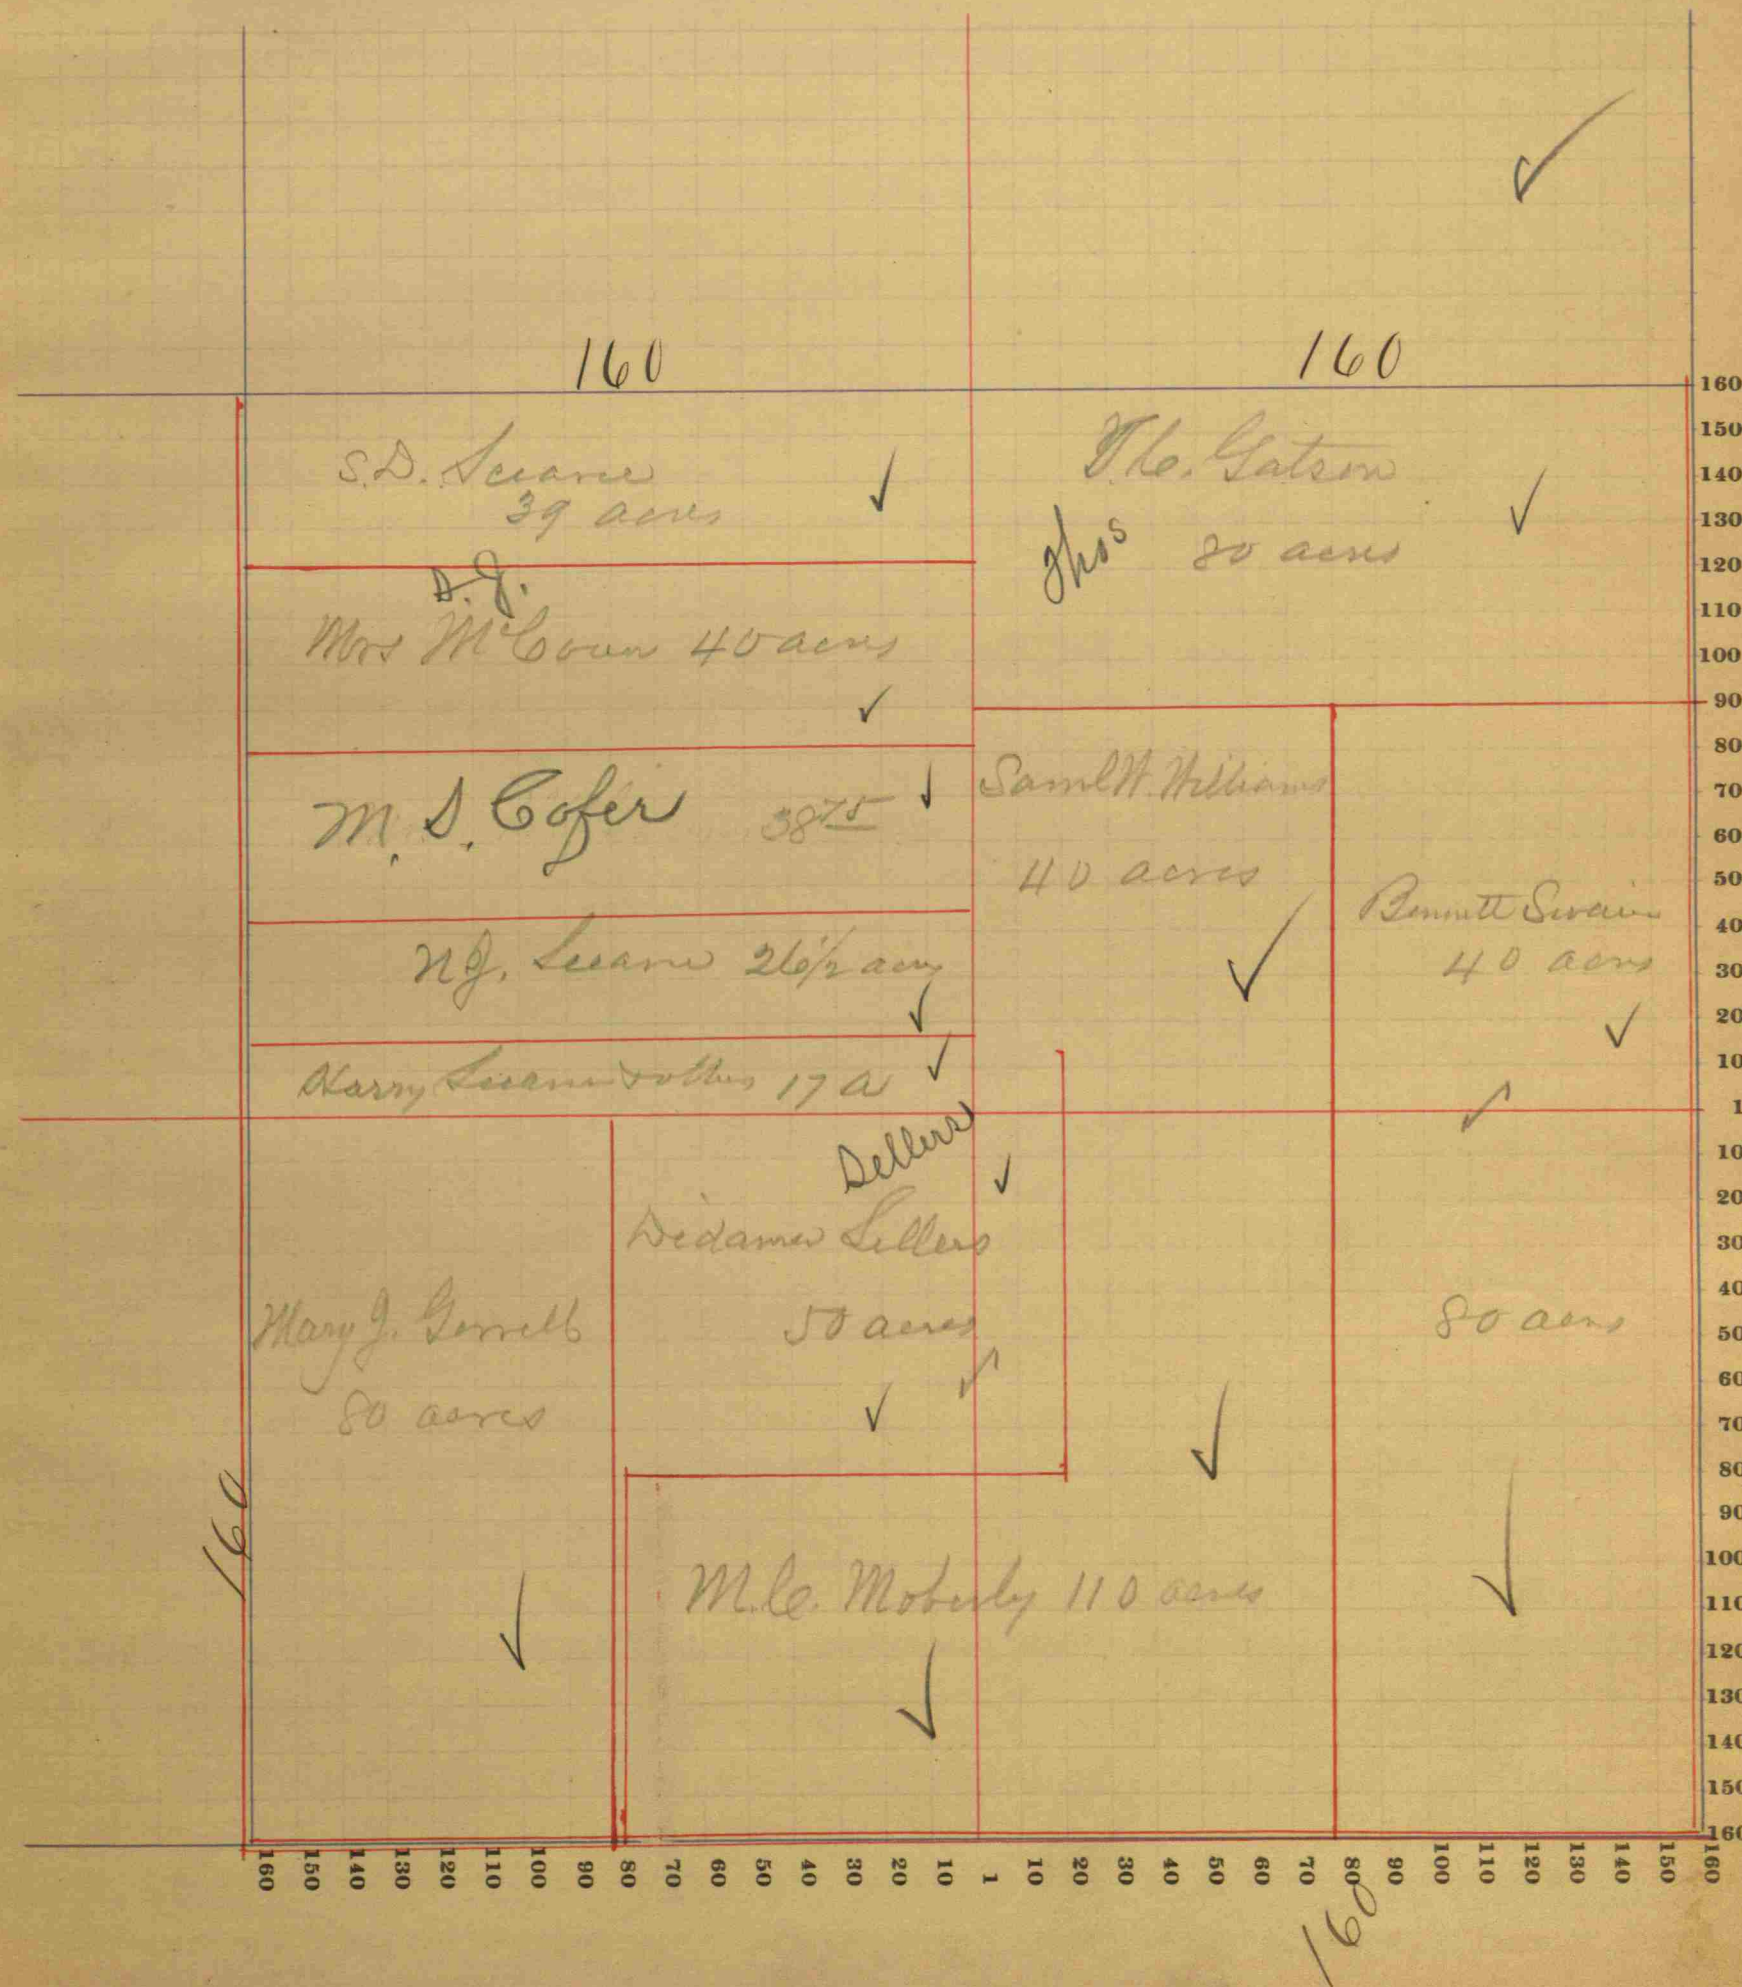 160
160
S.D.
39 acres
Gatson
Thos
80 acres
D. J.
Mrs McCoun 40 acres
M. D. Cofer 38 75
Saml W. Williams
40 acres
N J. 26 1/2 acres
Bennett Swain
40 acres
Harry & others 17 a
Sellers
Didamer Sellers
50 acres
Mary J. Gorrell
80 acres
80 acres
160
M.C. Moberly 110 acres
160
150
140
130
120
110
100
90
80
70
60
50
40
30
20
10
1
10
20
30
40
50
60
70
80
90
100
110
120
130
140
150
160
160 150 140 130 120 110 100 90 80 70 60 50 40 30 20 10 1 10 20 30 40 50 60 70 80 90 100 110 120 130 140 150 160
160